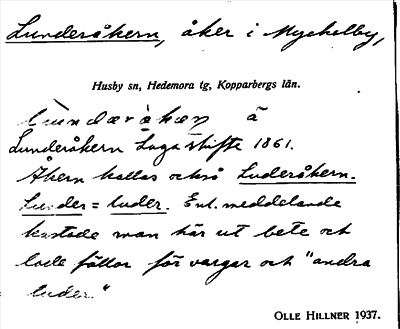 Lunderåkern, åker i Myckelby,
Husby sn, Hedemora tg, Kopparbergs län.
å
Lunderåkern Laga skifte 1861.
Åkern kallas också Luderåkern.
Lunder = luder. Enl. meddelande
kastade man här ut bete och
lade fällor för vargar och "andra
luder."
OLLE HILLNER 1937.